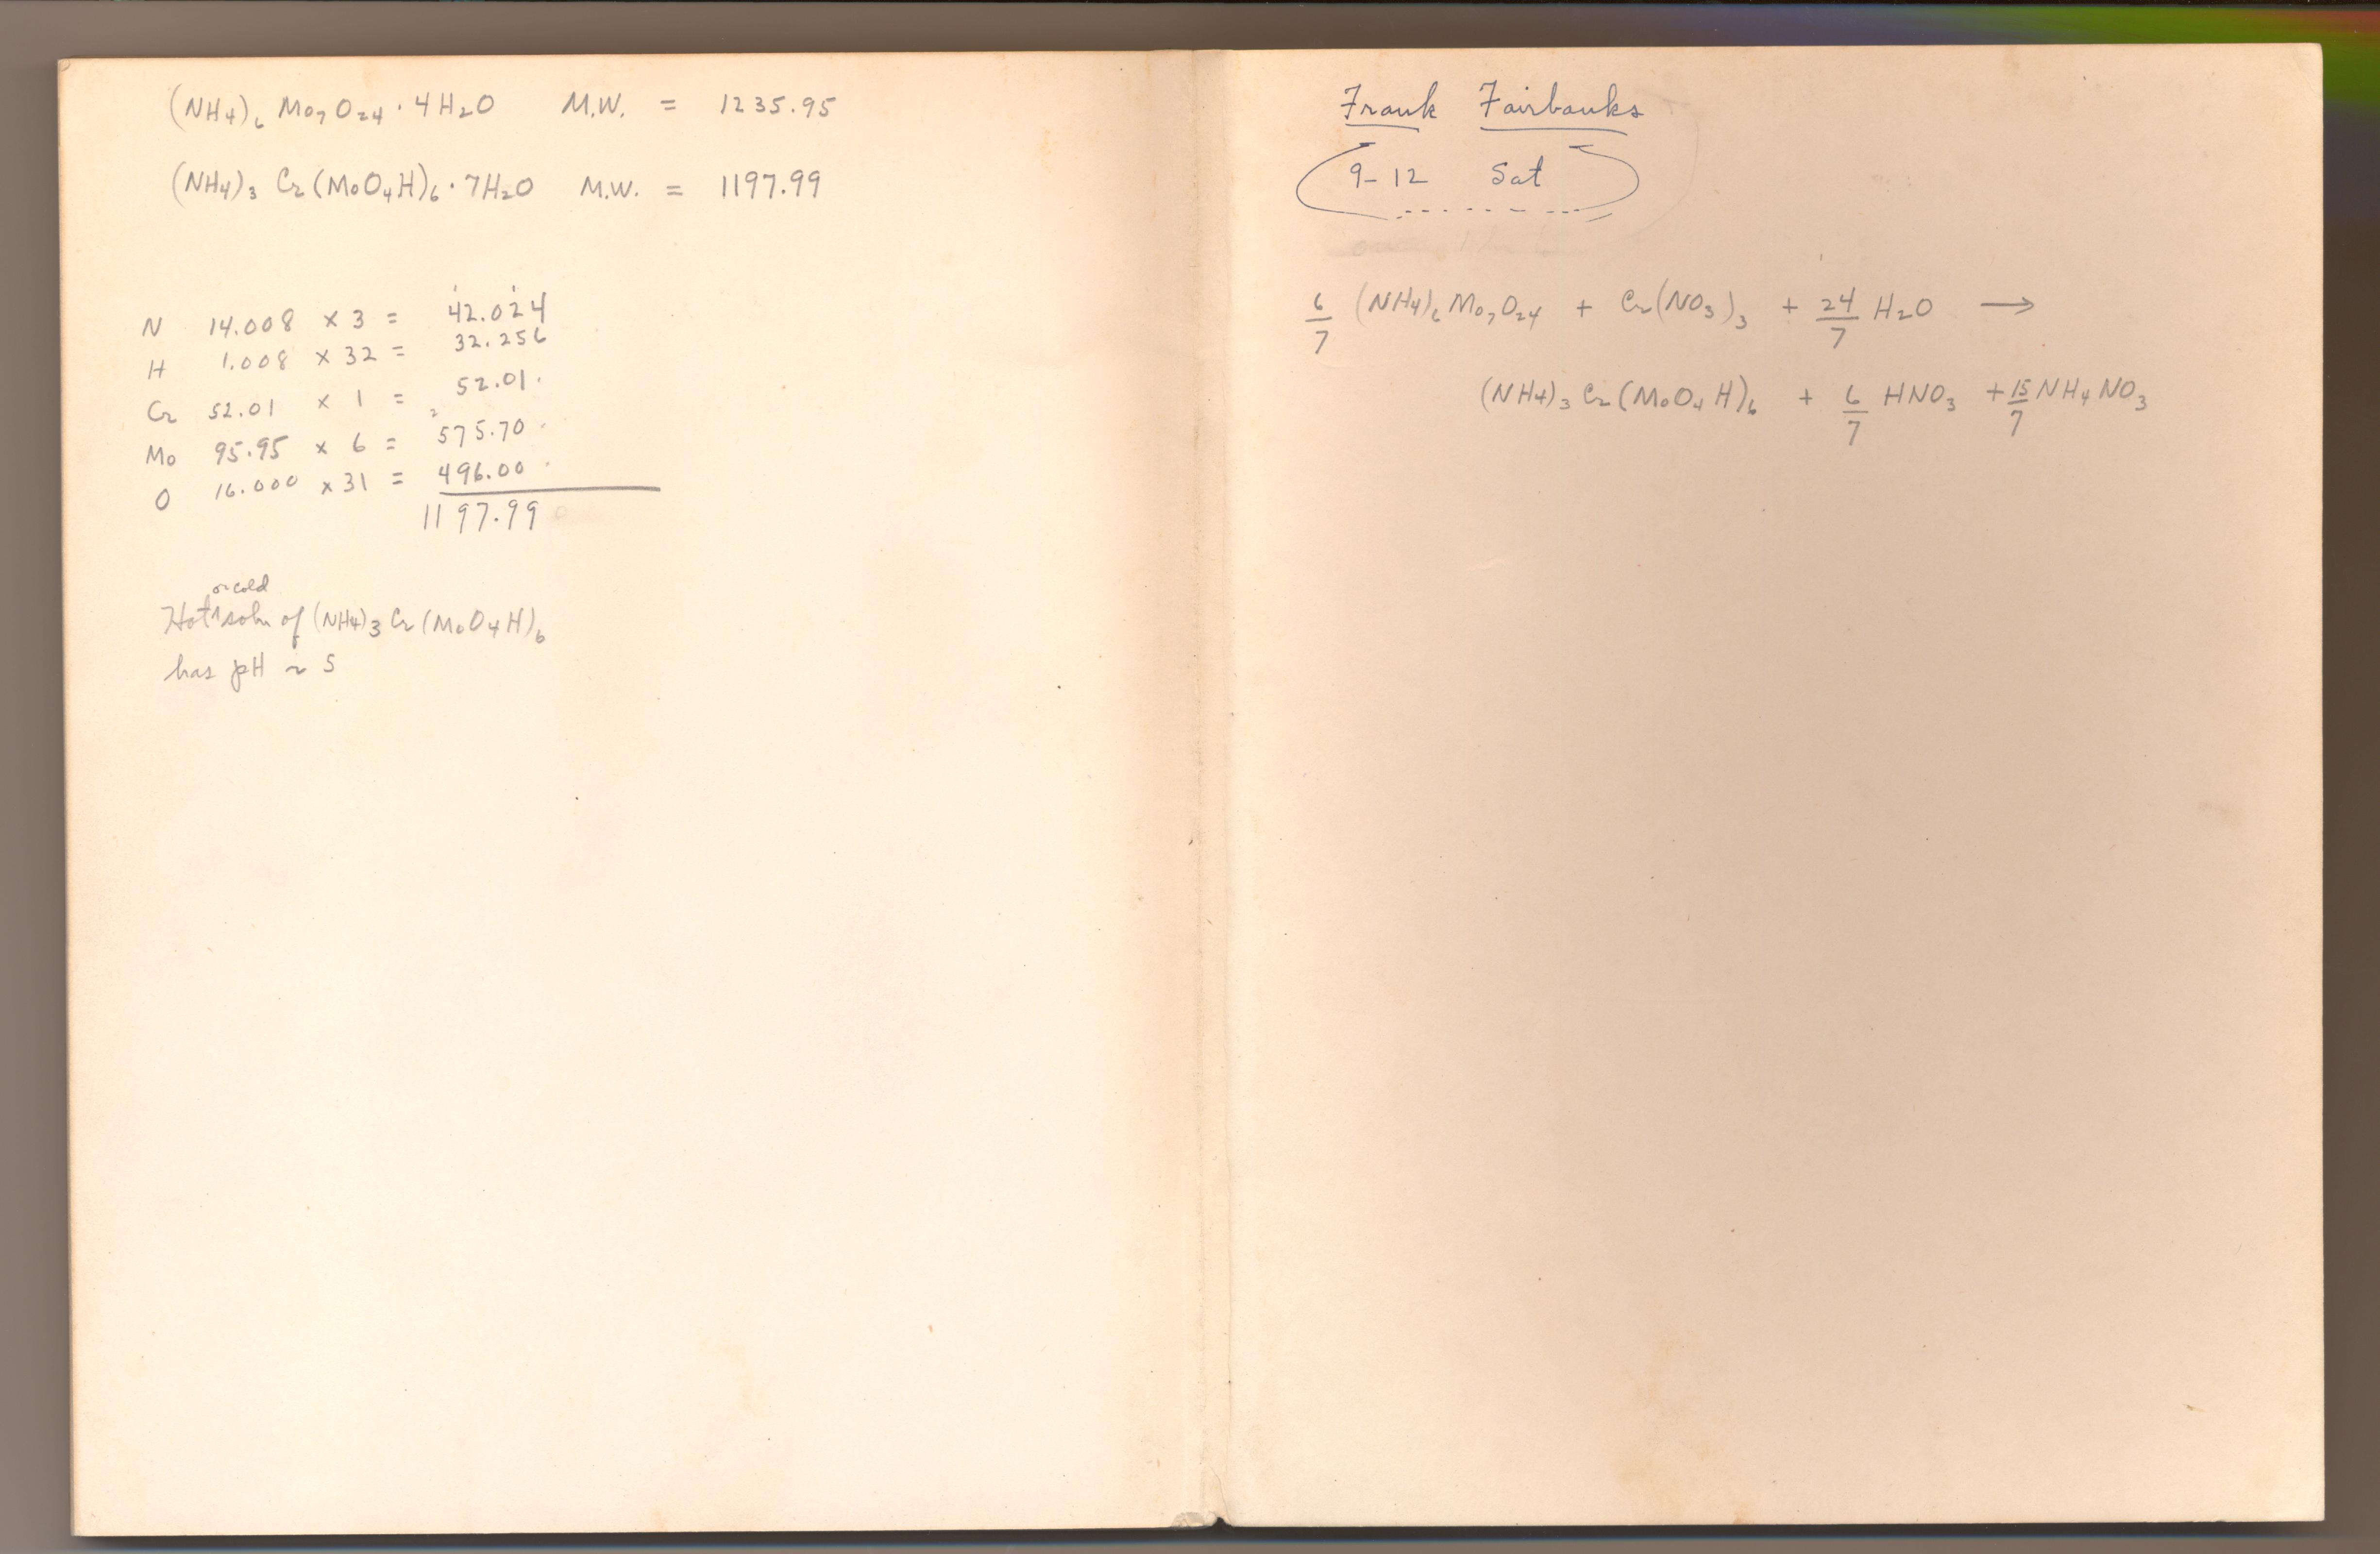 (NH4)6 Mo7O24 · 4H2O M.W. = 1235.95
(NH4)3 Cr(MoO4H)6 · 7H2O M.W. = 1197.99
N 14.008 x 3 = 42.024
H 1.008 x 32 = 32.256
Cr 52.01 x 1 = 52.01
Mo 95.95 x 6 = 575.70
O 16.000 x 31 = 496.00
1197.99
or cold
Hot ^ soln of (NH4)3 Cr(MoO4H)6
has pH ~ 5
Frank Fairbanks
9-12 Sat
6/7 (NH4)6Mo7O24 + Cr(NO3)3 + 24/7 H2O →
(NH4)3 Cr(MoO4H)6 + 6/7 HNO3 + 15/7 NH4NO3